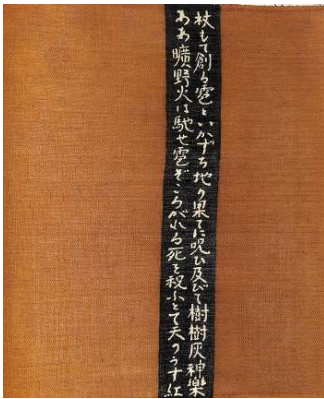 杖もて創る雹といかずち地の果てに呪ひ及びて樹樹灰神樂
ああ曠野火は馳せ雹ぞころがれる死を祝ふとて天のうす紅